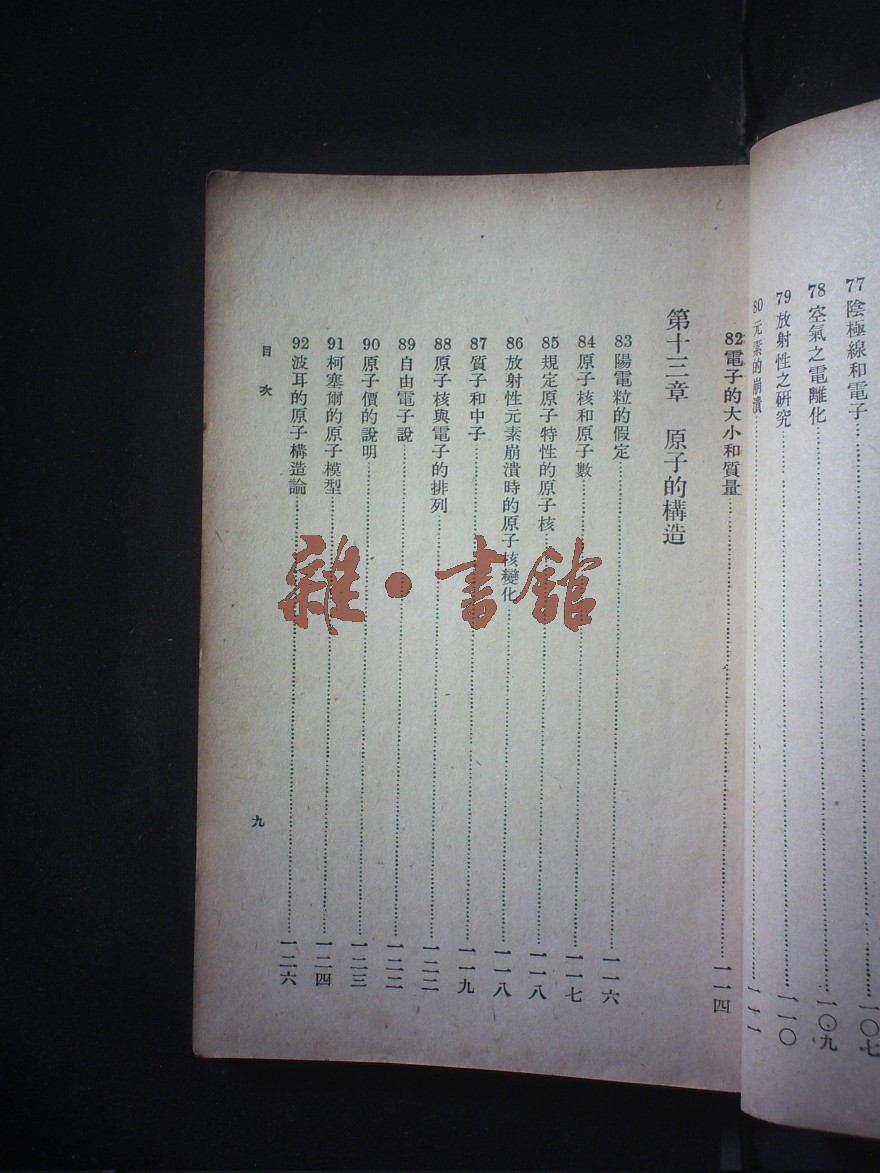 77 陰極線和電子……一〇七
78 空氣之電離化……一〇九
79 放射性之研究……一一〇
80 元素的崩潰……一一一
82 電子的大小和質量……一一四
第十三章 原子的構造
83 陽電粒的假定……一一六
84 原子核和原子數……一一七
85 規定原子特性的原子核……一一八
86 放射性元素崩潰時的原子核變化……一一八
87 質子和中子……一一九
88 原子核與電子的排列……一二二
89 自由電子說……一二二
90 原子價的說明……一二三
91 柯塞爾的原子模型……一二四
92 波耳的原子構造論……一二六
目次
九
雜·書館